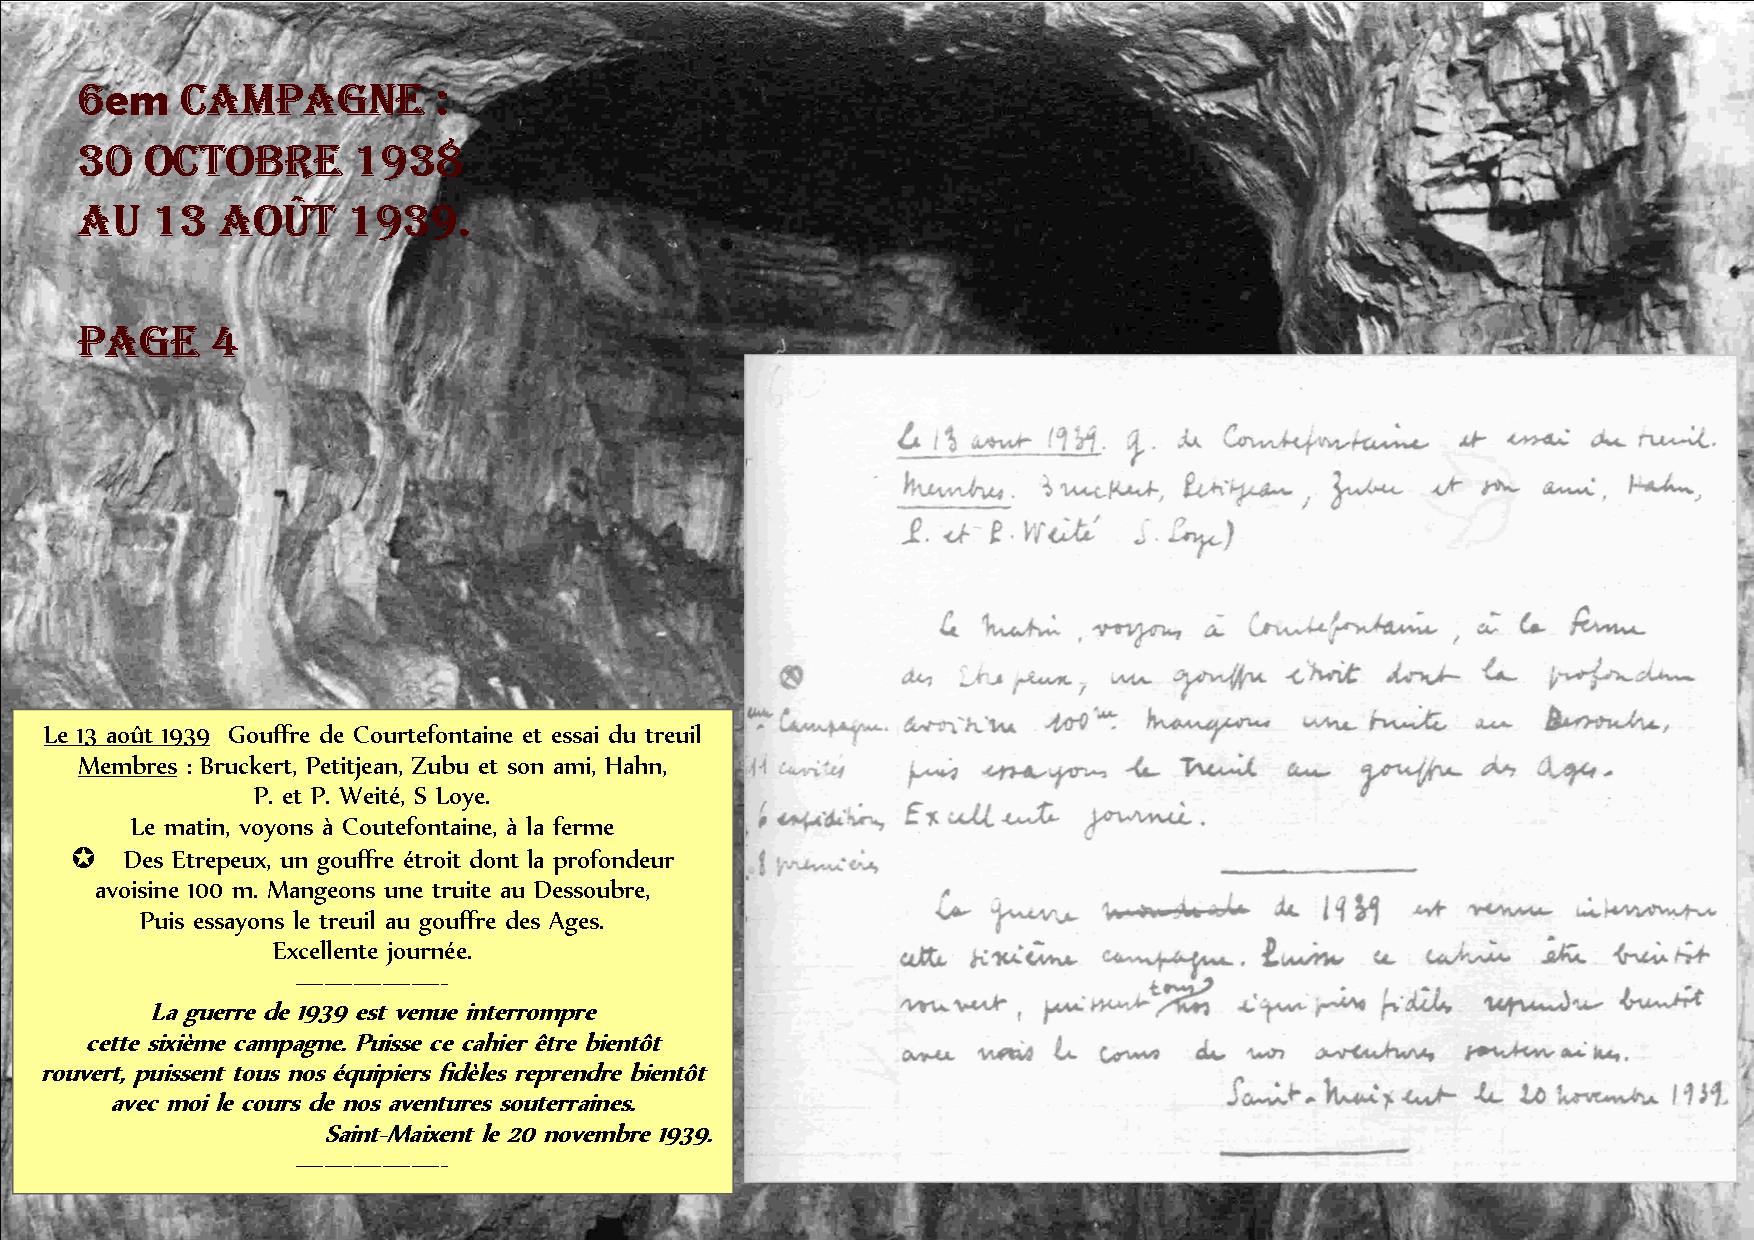 6em CAMPAGNE :
30 OCTOBRE 1938
AU 13 AOÛT 1939.
PAGE 4
Le 13 août 1939 Gouffre de Courtefontaine et essai du treuil
Membres : Bruckert, Petitjean, Zubu et son ami, Hahn,
P. et P. Weité, S Loye.
Le matin, voyons à Coutefontaine, à la ferme
✪ Des Etrepeux, un gouffre étroit dont la profondeur
avoisine 100 m. Mangeons une truite au Dessoubre,
Puis essayons le treuil au gouffre des Ages.
Excellente journée.
La guerre de 1939 est venue interrompre
cette sixième campagne. Puisse ce cahier être bientôt
rouvert, puissent tous nos équipiers fidèles reprendre bientôt
avec moi le cours de nos aventures souterraines.
Saint-Maixent le 20 novembre 1939.
Le 13 aout 1939. g. de Courtefontaine et essai du treuil.
Membres. Bruckert, Petitjean, Zubu et son ami, Hahn,
P. et P. Weité S. Loye)
Le matin, voyons à Courtefontaine, à la ferme
des Etrepeux, un gouffre étroit dont la profondeur
avoisine 100m. Mangeons une truite au Dessoubre,
puis essayons le treuil au gouffre des Ages.
Excellente journée.
Campagne.
11 cavités
6 expéditions
8 premières
La guerre mondiale de 1939 est venue interrompre
cette sixième campagne. Puisse ce cahier être bientôt
rouvert, puissent tous nos équipiers fidèles reprendre bientôt
avec le cours de nos aventures souterraines.
Saint-Maixent le 20 novembre 1939.